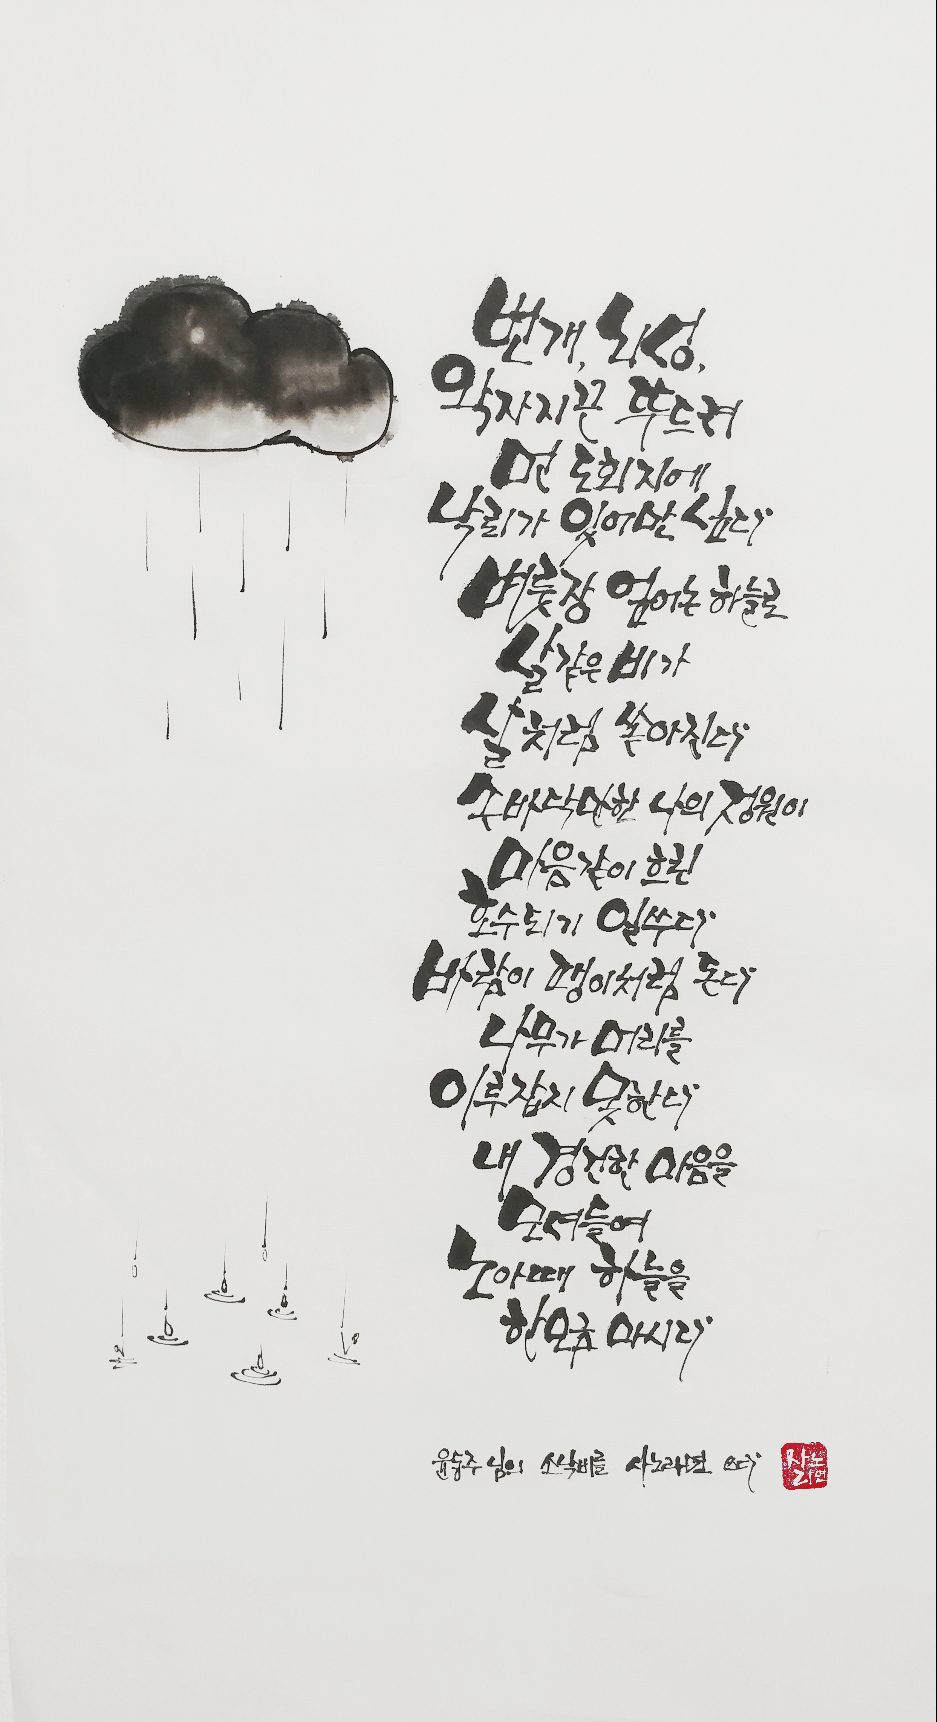 번개, 뇌성,
왁자지끈 뚜드려
먼 도회지에
낙뢰가 있어만 싶다
벼룻장 엎어논 하늘로
살같은 비가
살처럼 쏟아진다
손바닥만한 나의 정원이
마음같이 흐린
호수되기 일쑤다
바람이 팽이처럼 돈다
나무가 머리를
이루잡지 못한다
내 경건한 마음을
모셔들여
노아때 하늘을
한모금 마시다
윤동주님의 소낙비를 사노라면 쓰다
사노라면